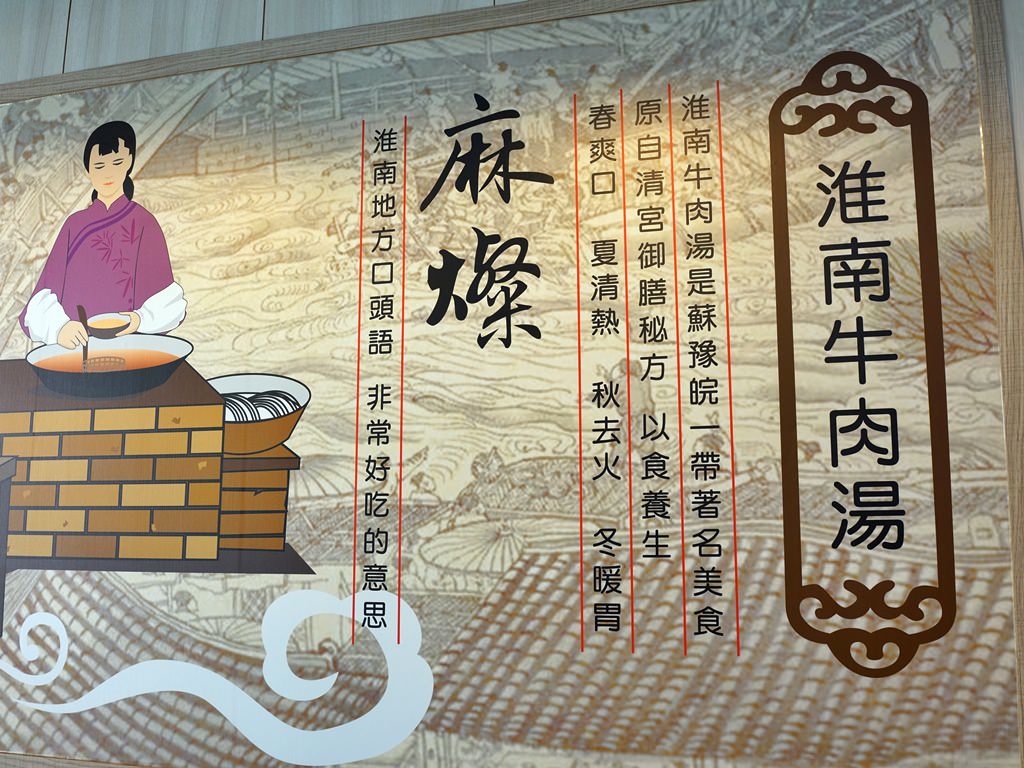 淮南牛肉湯
淮南牛肉湯是蘇豫皖一帶著名美食
原自清宮御膳秘方 以食養生
春爽口 夏清熱 秋去火 冬暖胃
麻燦
淮南地方口頭語 非常好吃的意思